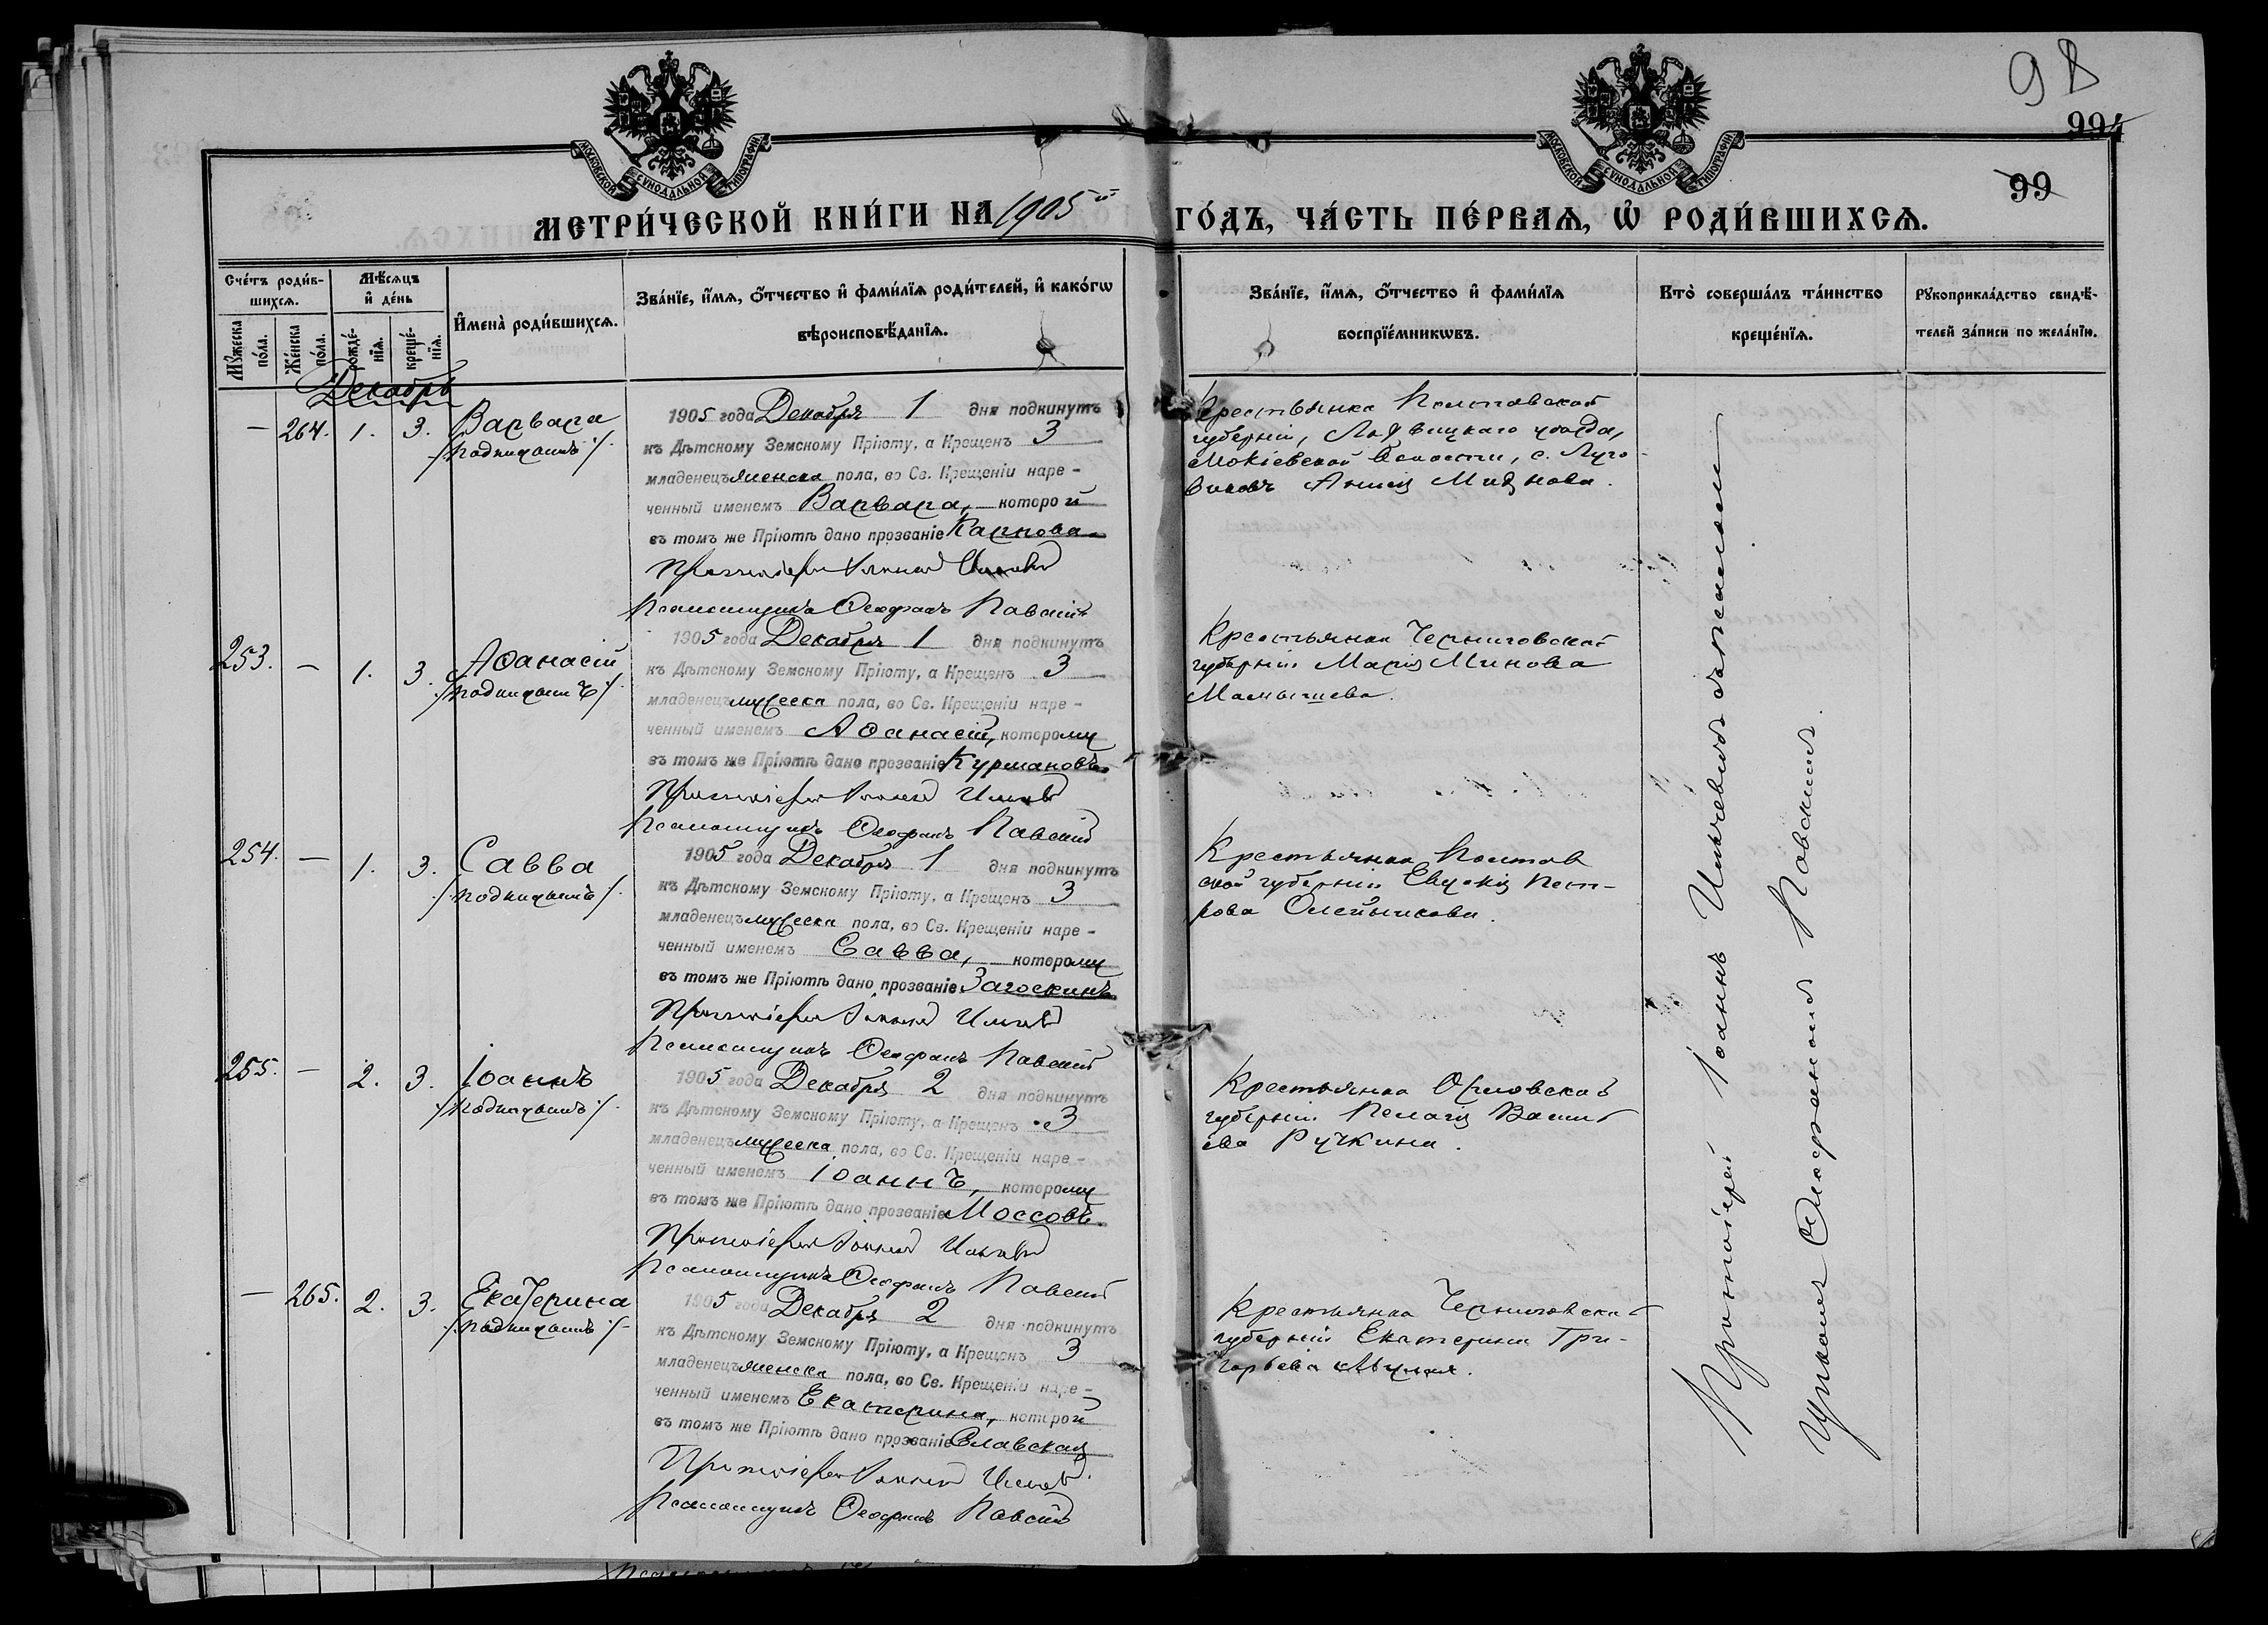 98
994
99
МОСКОВСКОЙ СѴНОДАЛЬНОЙ ТИПОГРАФІИ
МОСКОВСКОЙ СѴНОДАЛЬНОЙ ТИПОГРАФІИ
МЕТРИ́ЧЕСКОЙ КНИ́ГИ НА 1905й ГО́ДЪ, ЧА́СТЬ ПЕ́РВАѦ, Ѽ РОДИ́ВШИХСѦ.
Сче́тъ роди́в-
шихсѧ.
Мѣ́сѧцъ
и҆ де́нь
Мꙋ́жеска
по́ла.
Же́нска
по́ла.
рожде́-
нїѧ.
креще́-
нїѧ.
И҆мена̀ роди́вшихсѧ.
Зва́нїе, и҆́мѧ, ѻ҆́тчество и҆ фами́лїѧ роди́телей, и҆ како́гѡ
вѣроисповѣ́данїѧ.
Зва́нїе, и҆́мѧ, ѻ҆́тчество и҆ фами́лїѧ
воспрїе́мникѡвъ.
Кто̀ соверша́лъ та́инство
креще́нїѧ.
Рꙋкоприкла́дство свидѣ́-
телей за́писи по жела́нїю.
Декабрь
— 264. 1. 3. Варвара
/подкидышъ/.
1905 года Декабря 1 дня подкинутъ
къ Дѣтскому Земскому Пріюту, а Крещенъ 3
младенецъ женска пола, во Св. Крещеніи наре-
ченный именемъ Варвара, которой
въ томъ же Пріютѣ дано прозваніе Карпова.
Протоіерей Іоаннъ
Псаломщикъ Ѳеофанъ Павскій
Крестьянка Полтавской
губерніи, Лохвицкаго уѣзда,
Мокіевской Волости, с. Луго
виковъ
253. — 1. 3. Аѳанасій
/подкидышъ/.
1905 года Декабря 1 дня подкинутъ
къ Дѣтскому Земскому Пріюту, а Крещенъ 3
младенецъ мужеска пола, во Св. Крещеніи наре-
ченный именемъ Аѳанасій, которому
въ томъ же Пріютѣ дано прозваніе Курмановъ.
Протоіерей Іоаннъ
Псаломщикъ Ѳеофанъ Павскій
Крестьянка Черниговской
губерніи Марія Минова
Мамышева.
254. — 1. 3. Савва
/подкидышъ/.
1905 года Декабря 1 дня подкинутъ
къ Дѣтскому Земскому Пріюту, а Крещенъ 3
младенецъ мужеска пола, во Св. Крещеніи наре-
ченный именемъ Савва, которому
въ томъ же Пріютѣ дано прозваніе Загоскинъ.
Протоіерей Іоаннъ
Псаломщикъ Ѳеофанъ Павскій
Крестьянка Полтав
ской губерніи Пет-
рова Олейникова.
255. — 2. 3. Іоаннъ
/подкидышъ/.
1905 года Декабря 2 дня подкинутъ
къ Дѣтскому Земскому Пріюту, а Крещенъ 3
младенецъ мужеска пола, во Св. Крещеніи наре-
ченный именемъ Іоаннъ, которому
въ томъ же Пріютѣ дано прозваніе Моссовъ.
Протоіерей Іоаннъ
Псаломщикъ Ѳеофанъ Павскій
Крестьянка Орловской
губерніи Пелагія Василь
ева Ручкина.
— 265. 2. 3. Екатерина
/подкидышъ/.
1905 года Декабря 2 дня подкинутъ
къ Дѣтскому Земскому Пріюту, а Крещенъ 3
младенецъ женска пола, во Св. Крещеніи наре-
ченный именемъ Екатерина, которой
въ томъ же Пріютѣ дано прозваніе Славская
Протоіерей Іоаннъ
Псаломщикъ Ѳеофанъ Павскій
Крестьянка Черниговской
губерніи Екатерина Гри-
горьева
Протоіерей Іоаннъ
Павскимъ.